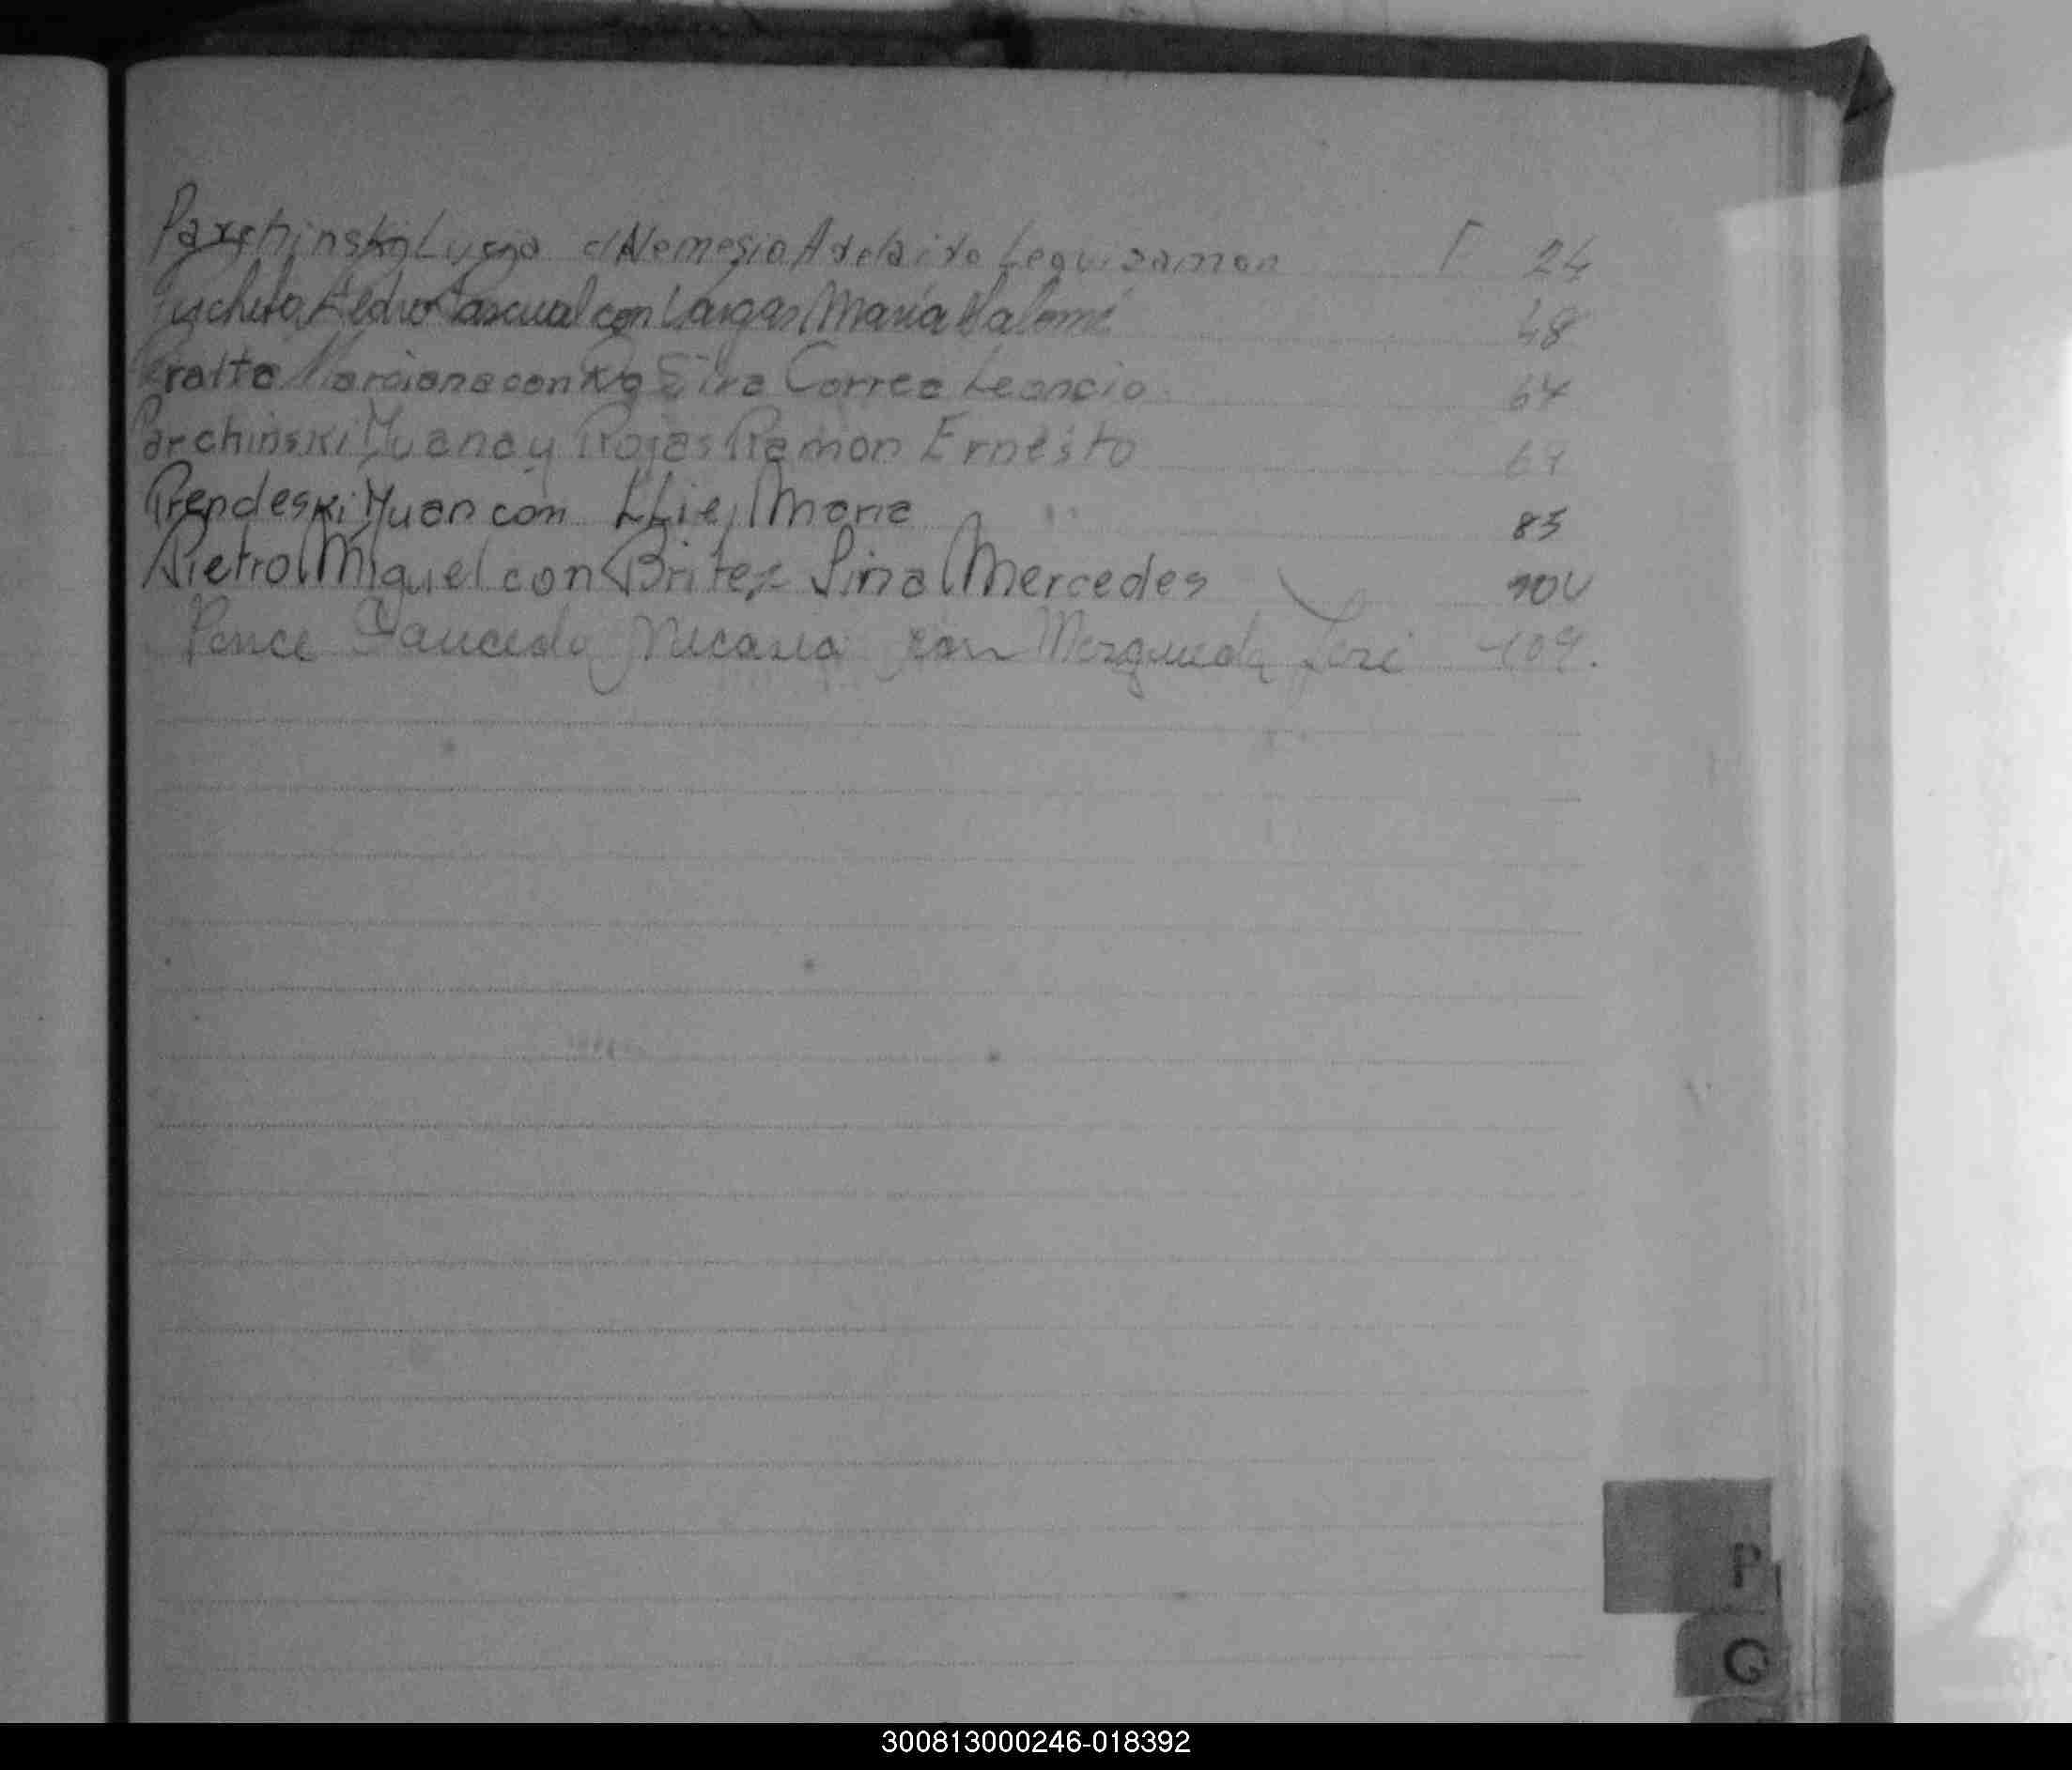 Parchinsky Luisa c/ Nemesio Adelaido Leguizamon F 24
Pedro Pascual con Vargas Maria Salomé 48
Peralta Marciana con Da Silva Correa Leoncio 64
Parchinski Juana y Rojas Ramon Ernesto 69
Prendeski Juan con Maria 85
Pietro Miguel con Britez Lina Mercedes 104
Ponce Saucedo con José 109.
P
Q
300813000246-018392